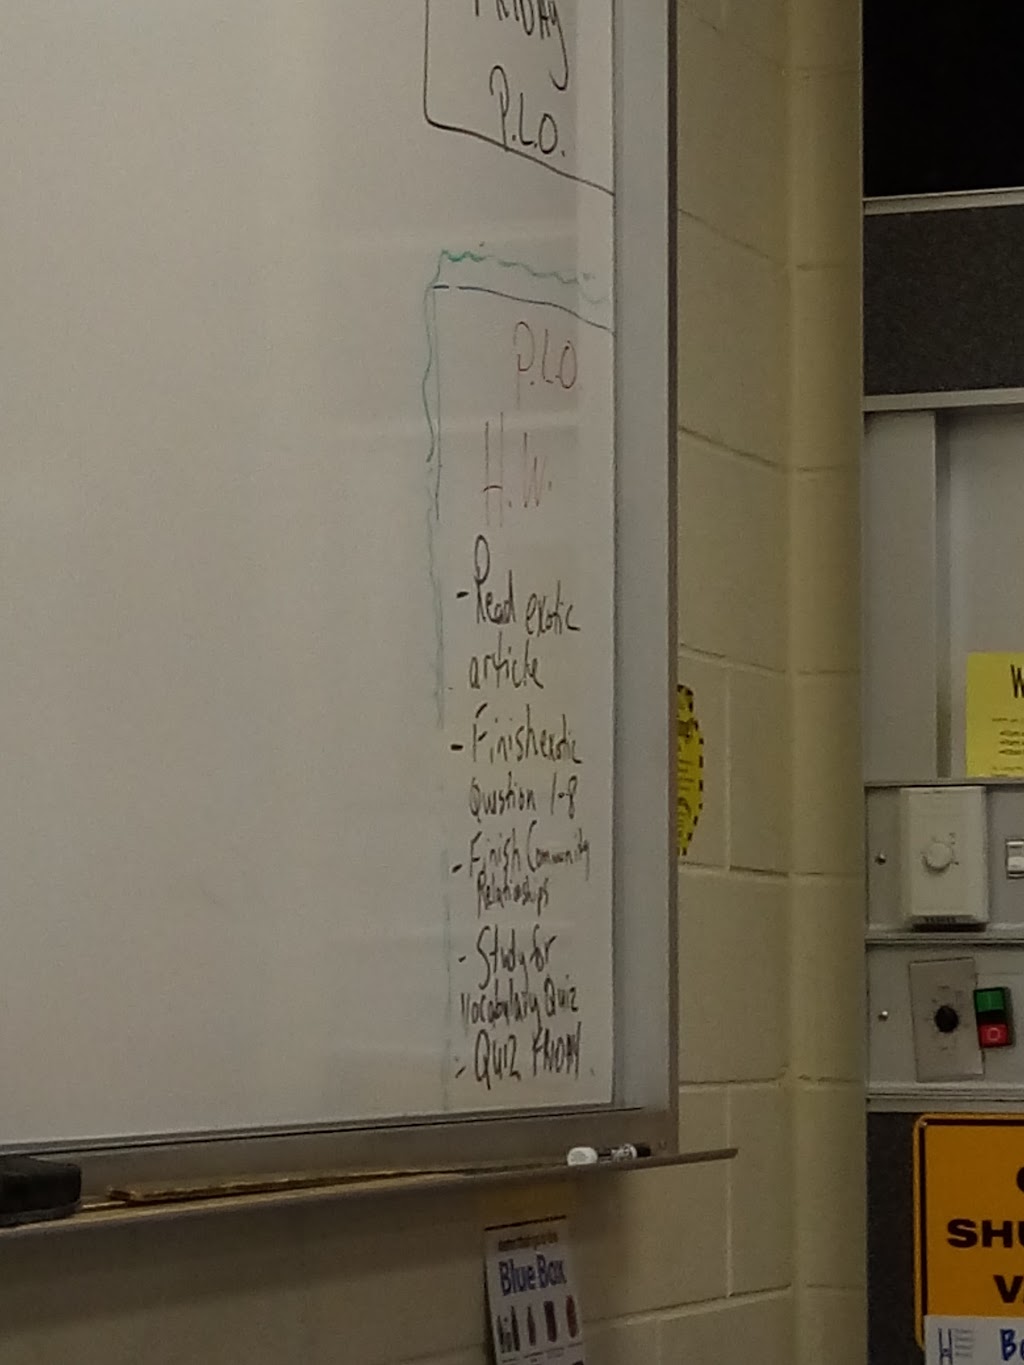 FRIDAY
P.L.O.
P.L.O
H.W.
- Read exotic
article
- Finish exotic
Question 1-8
- Finish Community
Relationships
- Study for
Vocabulary Quiz
- QUIZ FRIDAY.
Blue Box
W
SHU
V